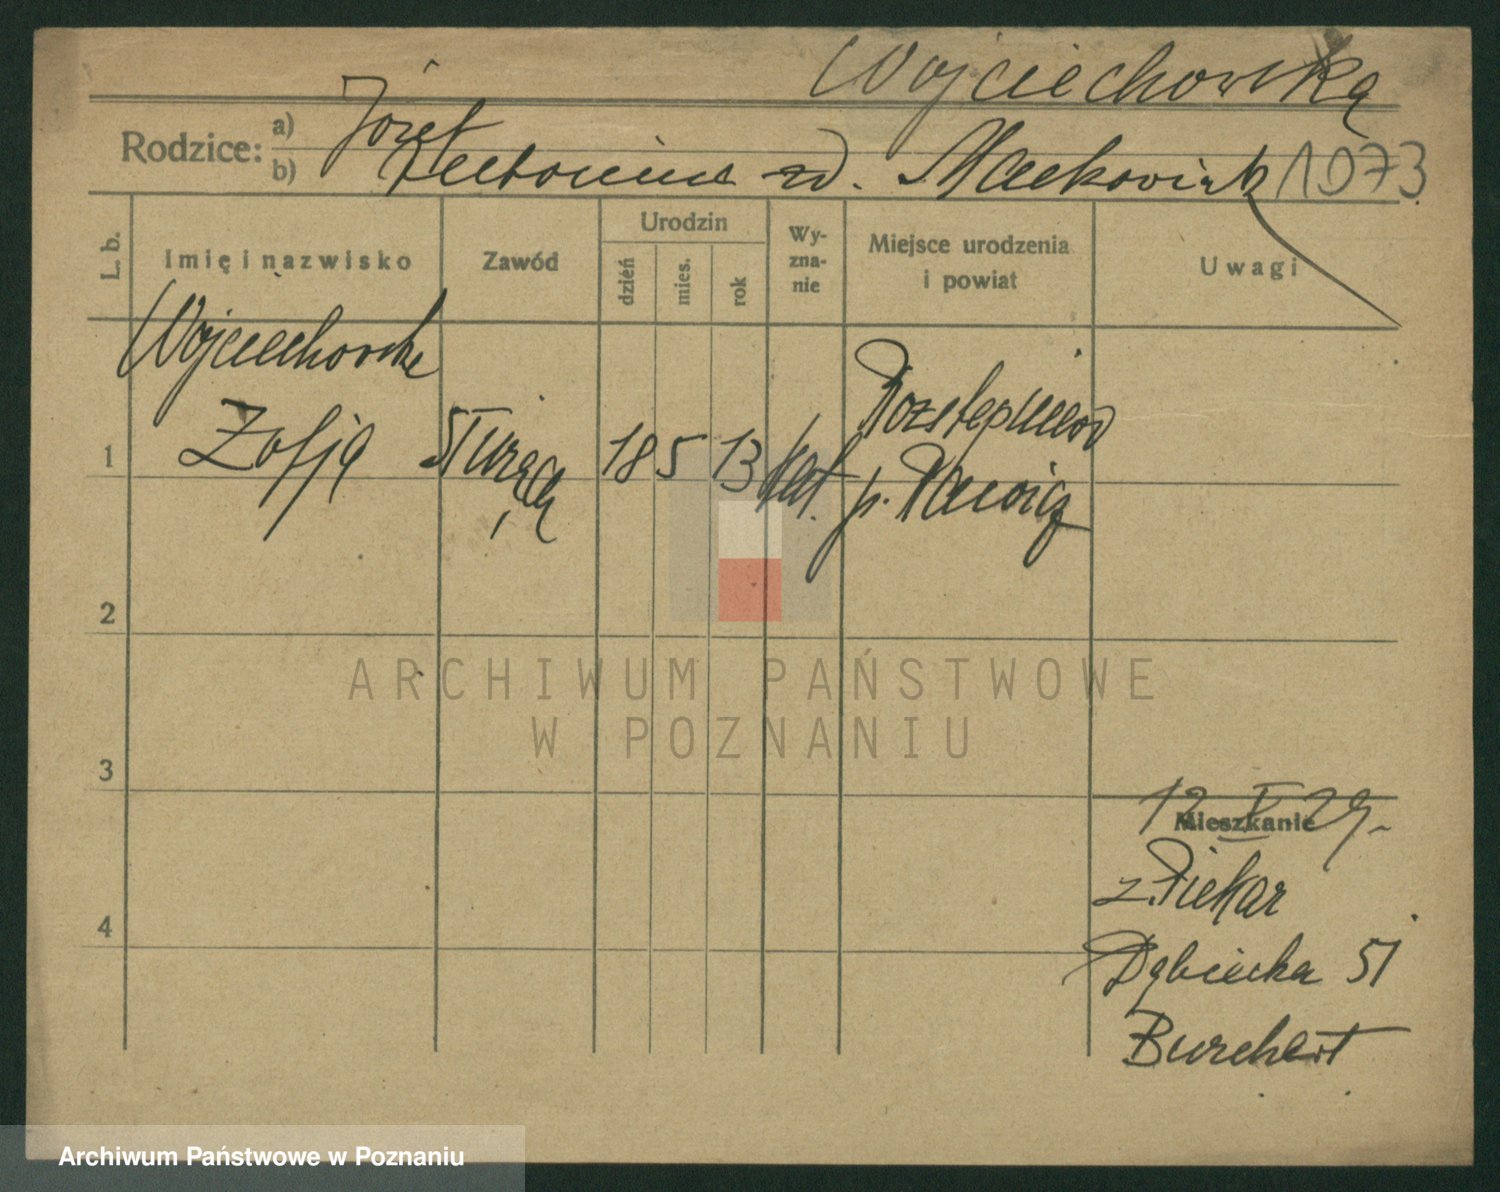 Wojciechowska
Rodzice: a) Józef
b) Antonina zd. Maćkowiak 1073
L. b. Imię i nazwisko Zawód Urodzin dzień mies. rok Wyznanie Miejsce urodzenia i powiat Uwagi
Wojciechowska
1 Zofja służąca 18 5 13 kat. Rozstępniewo
p. Rawicz
2
3
12 V 29.
Mieszkanie
z. Piekar
4
Dąbiecka 51
Burchert
ARCHIWUM PAŃSTWOWE
W POZNANIU
Archiwum Państwowe w Poznaniu